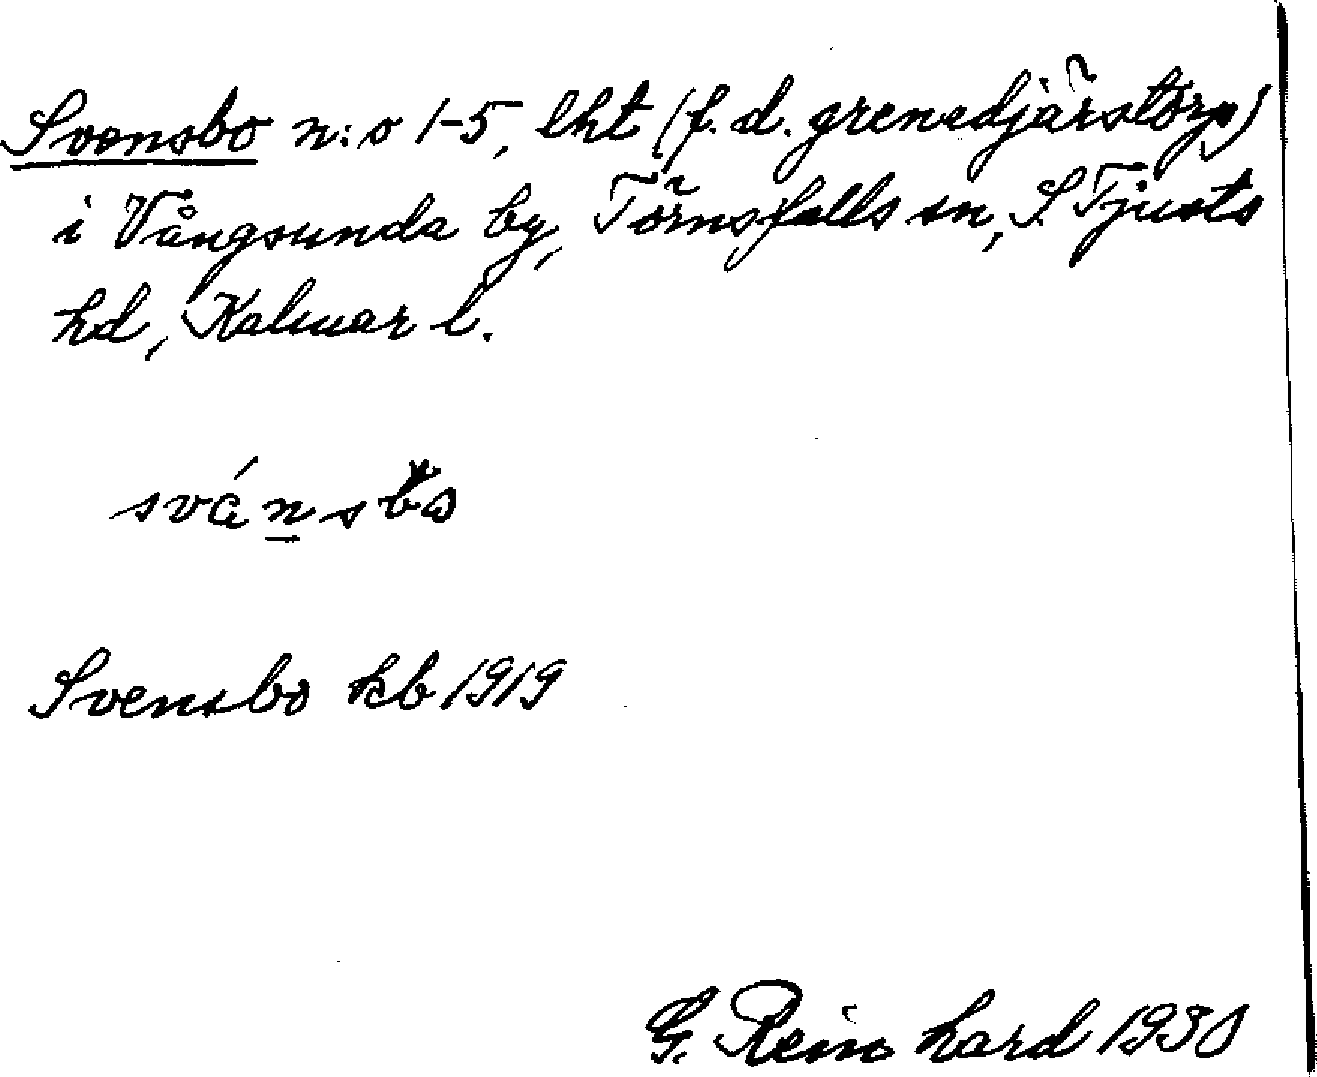 Svensbo n:o 1-5, lht (f. d. grenadjärstorp)
i Vångsunda by, Törnsfalls sn, S. Tjusts
hd, Kalmar l.
Svensbo kb 1919
G. Reinhard 1930